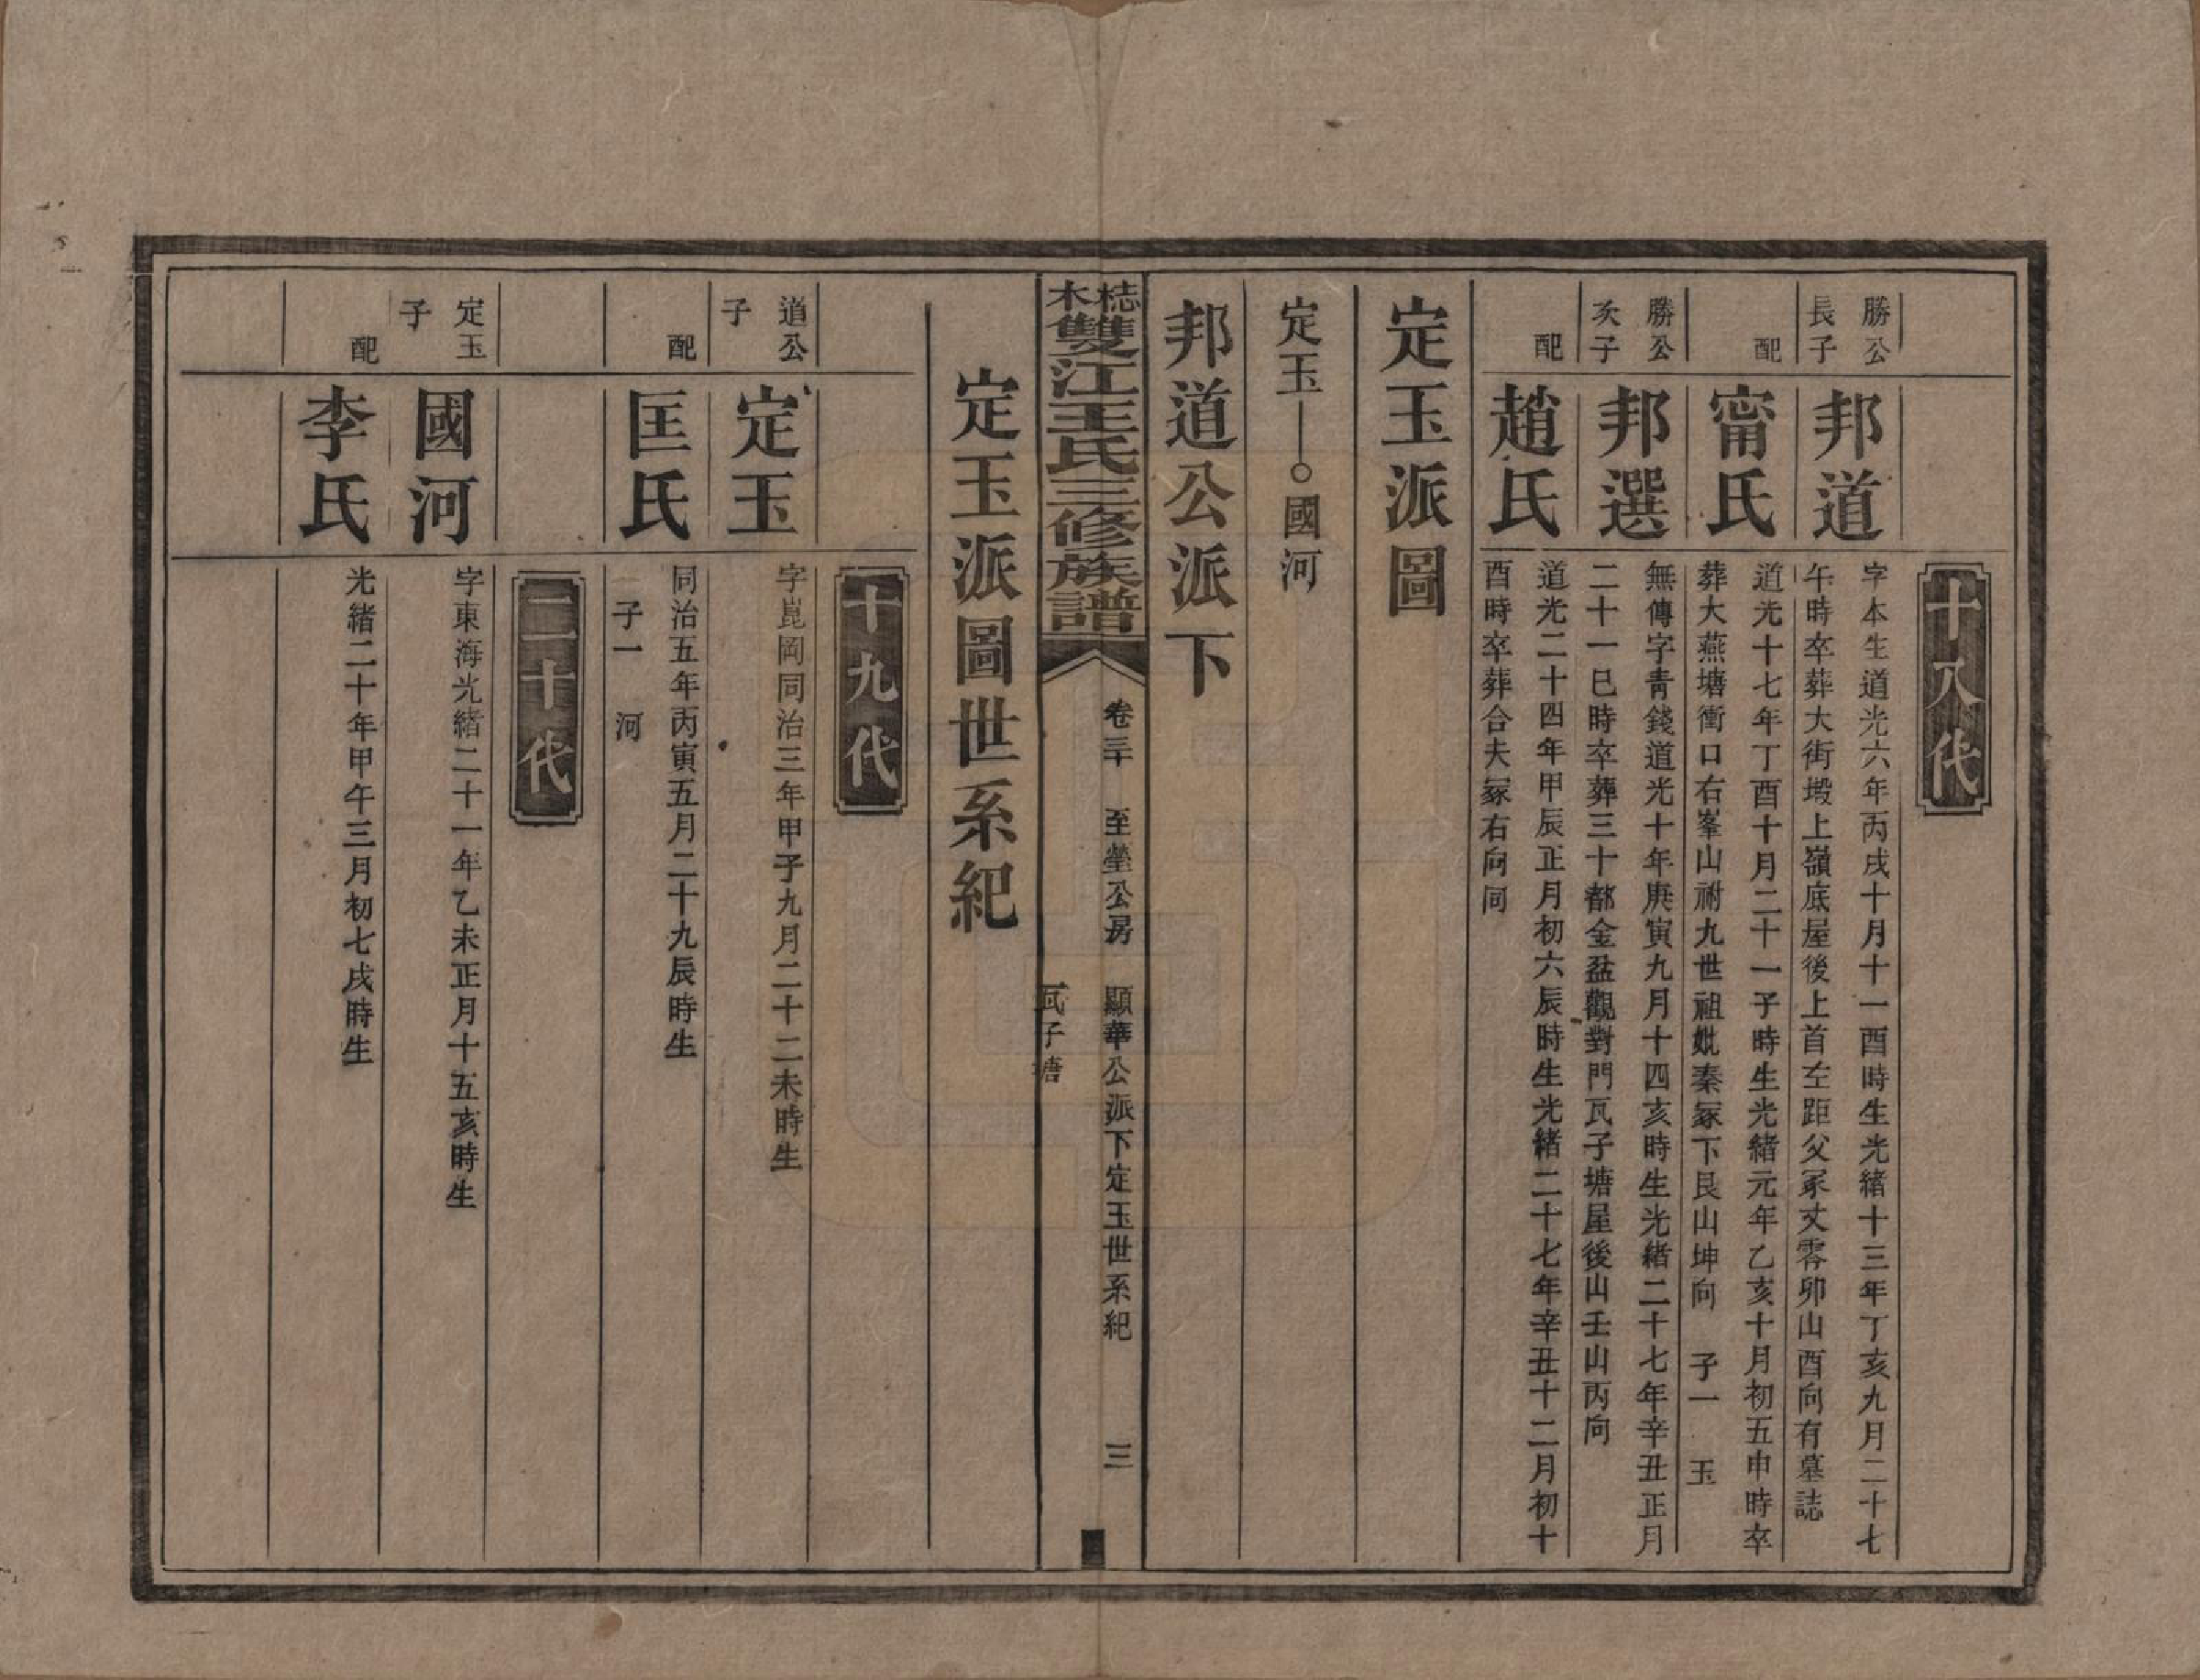 十八代
勝公長子
邦道
字本生道光六年丙戌十月十一酉時生光緒十三年丁亥九月二十七
午時卒葬大街塅上嶺底屋後上首左距父冢丈零卯山酉向有墓誌
配
甯氏
道光十七年丁酉十月二十一子時生光緒元年乙亥十月初五申時卒
葬大燕塘衝口右峯山祔九世祖妣秦冢下艮山坤向 子一 玉
勝公次子
邦選
無傳字青錢道光十年庚寅九月十四亥時生光緒二十七年辛丑正月
二十一巳時卒葬三十都金盆觀對門瓦子塘屋後山壬山丙向
配
趙氏
道光二十四年甲辰正月初六辰時生光緒二十七年辛丑十二月初十
酉時卒葬合夫冢右向同
定玉派圖
定玉—○國河
邦道公派下
梽木雙江王氏三修族譜
卷三十 至瑩公房 顯華公派下定玉世系紀 三
瓦子塘
定玉派圖世系紀
十九代
道公子
定玉
字崑岡同治三年甲子九月二十二未時生
配
匡氏
同治五年丙寅五月二十九辰時生
子一 河
二十代
定玉子
國河
字東海光緒二十一年乙未正月十五亥時生
配
李氏
光緒二十年甲午三月初七戌時生